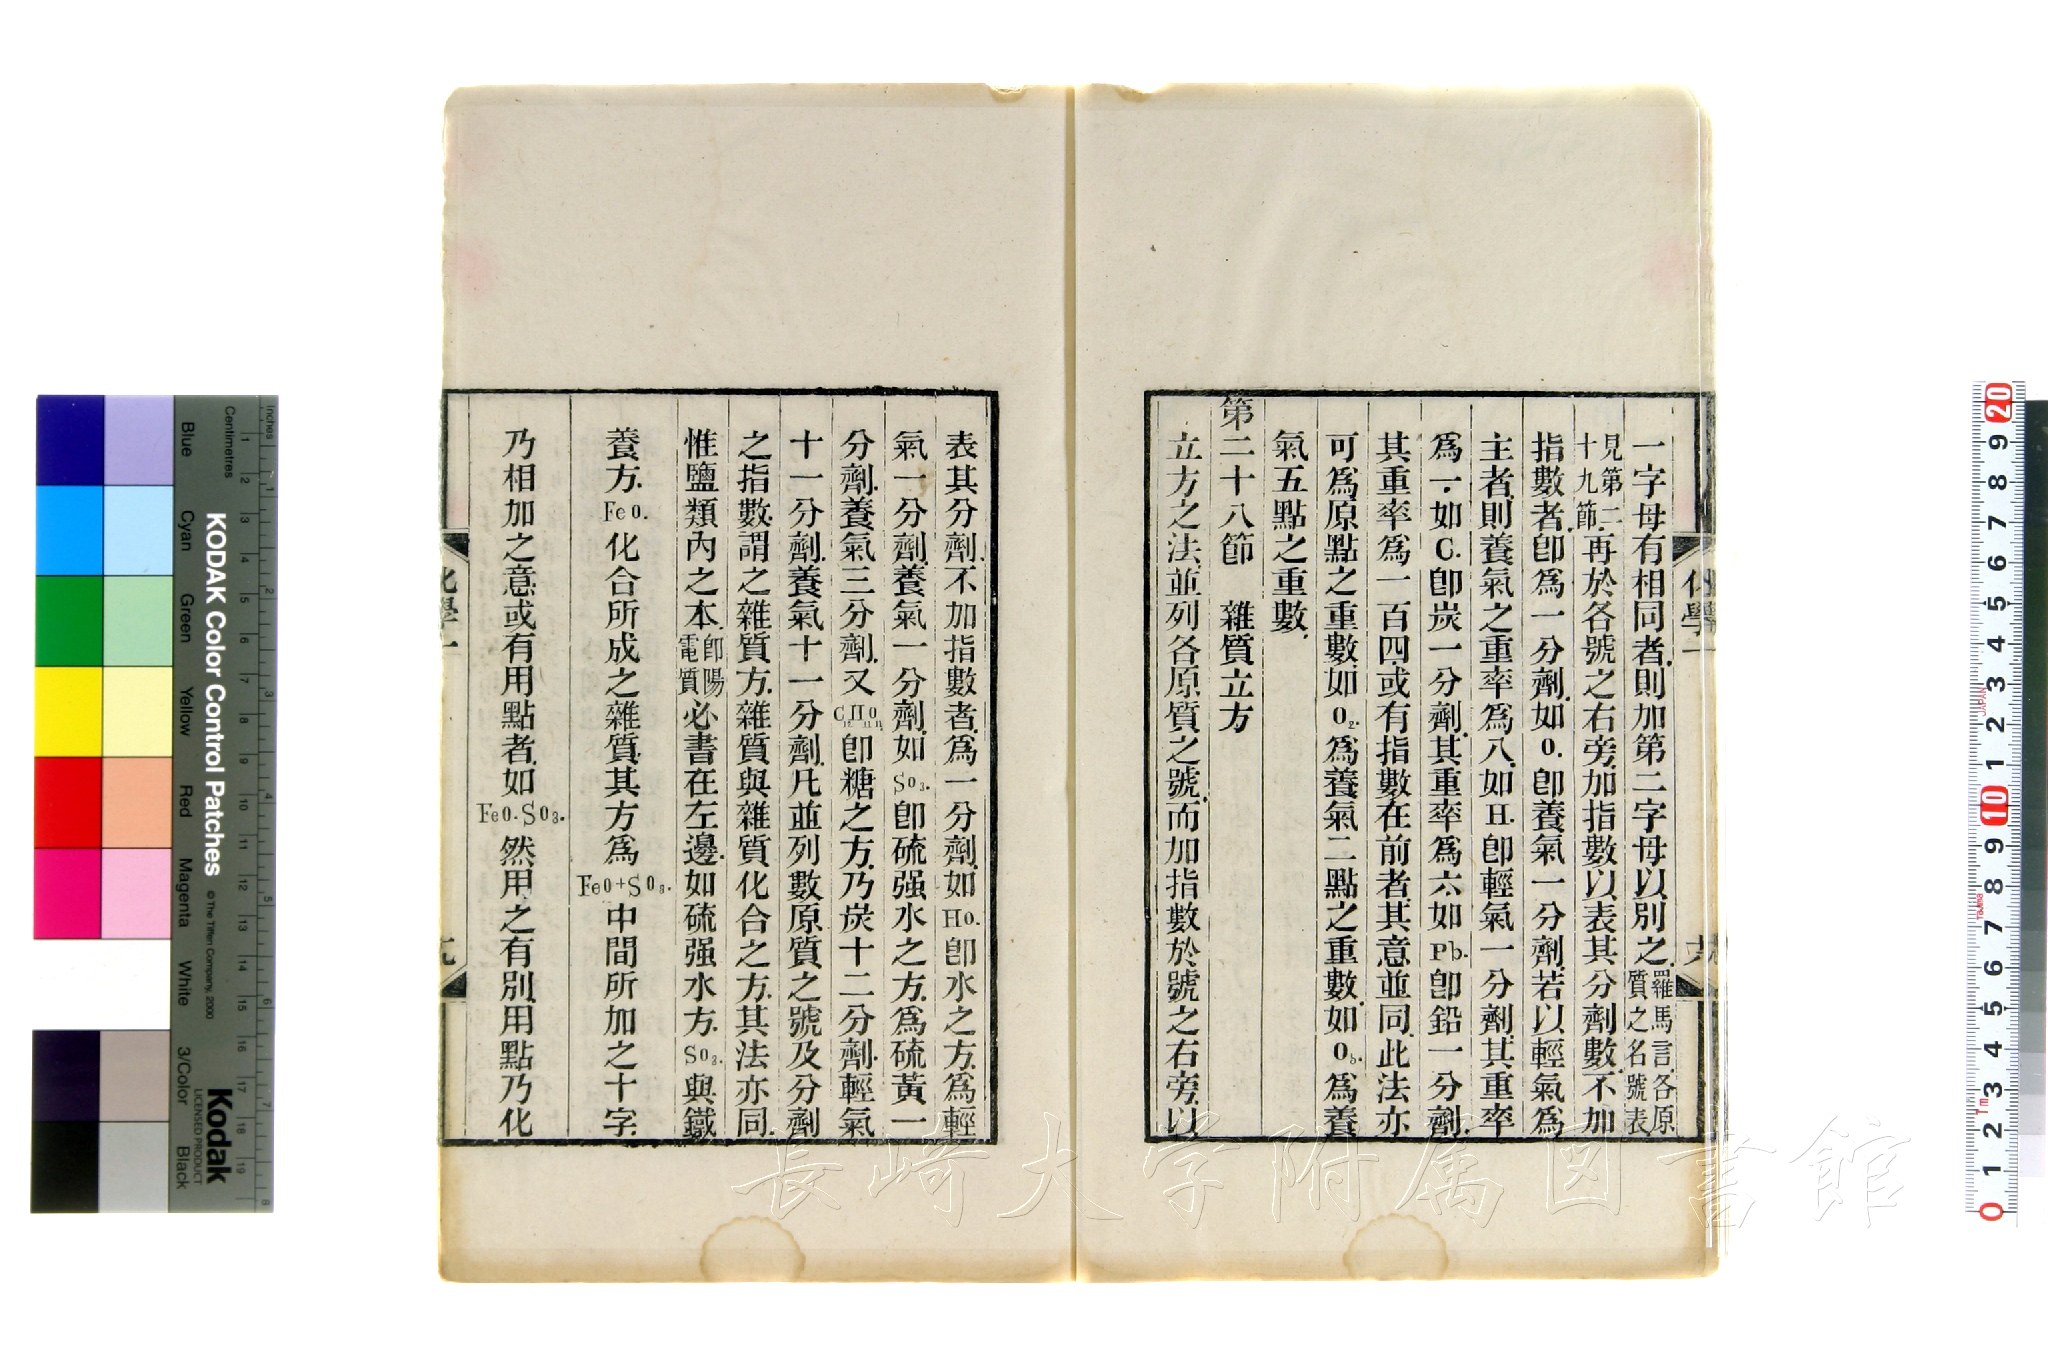 一字母有相同者、則加第二字母以別之、羅馬言各原質之名號表
見第二十九節、再於各號之右旁加指數以表其分劑數、不加
指數者、卽爲一分劑、如O.卽養氣一分劑、若以輕氣爲
主者、則養氣之重率爲八、如H.卽輕氣一分劑、其重率
爲一、如C.卽炭一分劑、其重率爲六、如Pb.卽鉛一分劑、
其重率爲一百四、或有指數在前者、其意並同、此法亦
可爲原點之重數、如O2.爲養氣二點之重數、如O5.爲養
氣五點之重數、
第二十八節 雜質立方
立方之法、並列各原質之號、而加指數於號之右旁、以
化學一
表其分劑、不加指數者、爲一分劑、如HO.卽水之方、爲輕
氣一分劑、養氣一分劑、如SO3.卽硫强水之方、爲硫黃一
分劑、養氣三分劑、又C12H11O11卽糖之方、乃炭十二分劑、輕氣
十一分劑、養氣十一分劑、凡並列數原質之號及分劑
之指數、謂之雜質方、雜質與雜質化合之方、其法亦同、
惟鹽類內之本、卽陽電質必書在左邊、如硫强水方、SO3.與鐵
養方、FeO.化合所成之雜質、其方爲FeO+SO3.中間所加之十字、
乃相加之意、或有用點者、如FeO.SO3.然用之有別、用點乃化
化學一
KODAK Color Control Patches
© The Tiffen Company, 2000
Kodak
LICENSED PRODUCT
Inches
Centimetres
Blue
Cyan
Green
Yellow
Red
Magenta
White
3/Color
Black
長崎大学附属図書館